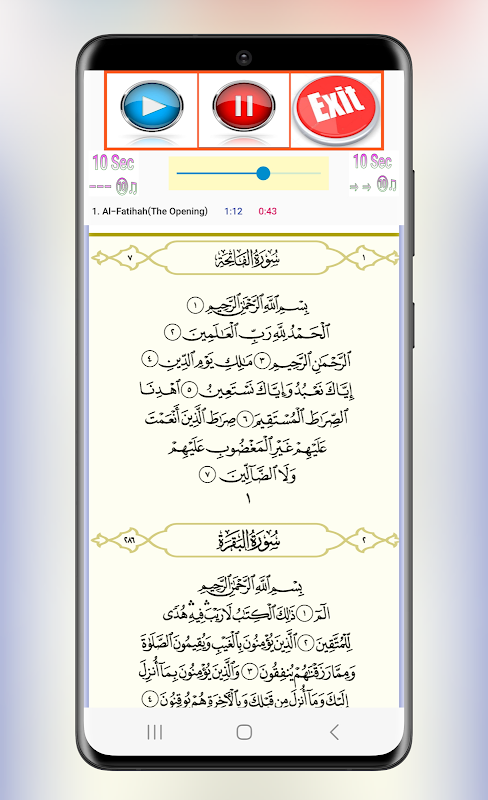 Exit
10 Sec
10 Sec
10
10
1. Al-Fatihah(The Opening) 1:12 0:43
١ سُورَةُ الفَاتِحَةِ ٧
بِسْمِ ٱللَّهِ ٱلرَّحْمَٰنِ ٱلرَّحِيمِ ١
ٱلْحَمْدُ لِلَّهِ رَبِّ ٱلْعَٰلَمِينَ ٢
ٱلرَّحْمَٰنِ ٱلرَّحِيمِ ٣ مَٰلِكِ يَوْمِ ٱلدِّينِ ٤
إِيَّاكَ نَعْبُدُ وَإِيَّاكَ نَسْتَعِينُ ٥ ٱهْدِنَا
ٱلصِّرَٰطَ ٱلْمُسْتَقِيمَ ٦ صِرَٰطَ ٱلَّذِينَ أَنْعَمْتَ
عَلَيْهِمْ غَيْرِ ٱلْمَغْضُوبِ عَلَيْهِمْ
وَلَا ٱلضَّآلِّينَ ٧
١
٢ سُورَةُ البَقَرَةِ ٢٨٦
بِسْمِ ٱللَّهِ ٱلرَّحْمَٰنِ ٱلرَّحِيمِ
الٓمٓ ١ ذَٰلِكَ ٱلْكِتَٰبُ لَا رَيْبَ ۛ فِيهِ ۛ هُدًى
لِّلْمُتَّقِينَ ٢ ٱلَّذِينَ يُؤْمِنُونَ بِٱلْغَيْبِ وَيُقِيمُونَ ٱلصَّلَوٰةَ
وَمِمَّا رَزَقْنَٰهُمْ يُنفِقُونَ ٣ وَٱلَّذِينَ يُؤْمِنُونَ بِمَآ أُنزِلَ
إِلَيْكَ وَمَآ أُنزِلَ مِن قَبْلِكَ وَبِٱلْءَاخِرَةِ هُمْ يُوقِنُونَ ٤